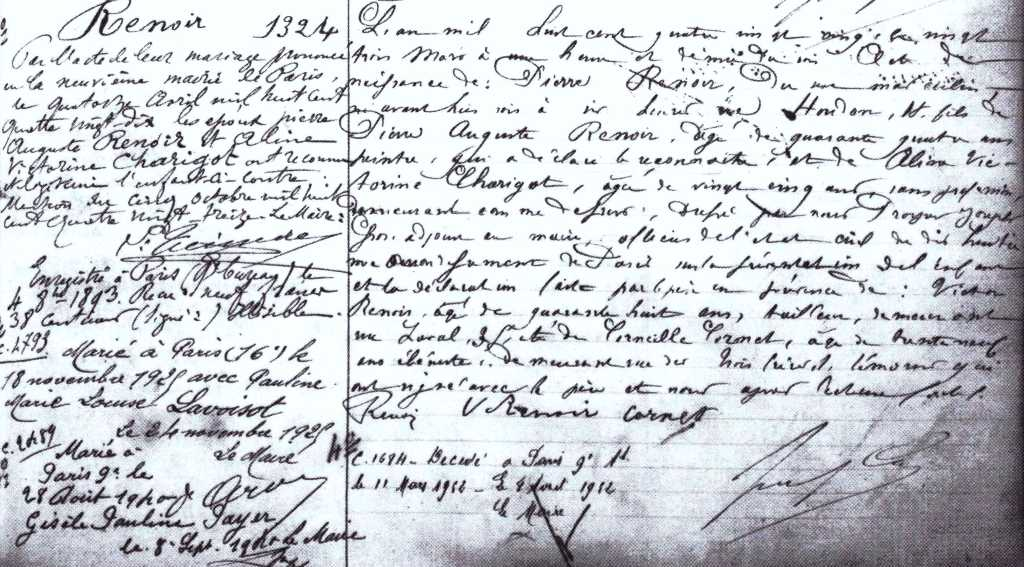 Renoir 1324
Par l'acte de leur mariage prononcé
en la neuvième mairie de Paris,
le quatorze Avril mil huit cent
quatre vingt dix les époux Pierre
Auguste Renoir et Aline
Victorine Charigot ont reconnu
et légitimé l'enfant ci-contre.
Mention du cinq octobre mil huit
cent quatre vingt treize. Le Maire:
Enregistré à Paris le
4 8bre 1893. Reçu neuf francs
38 centimes (signé) illisible.
c. 4793
Marié à Paris (16e) le
18 novembre 1925 avec Pauline
Marie Louise Lavoisot
Le 24 novembre 1925
Le Maire
c. 2489
Marié à
Paris 9e le
28 Août 1940
Gisèle Pauline Payer
le 8 Sept. 1940 le Maire
L'an mil huit cent quatre vingt cinq, le vingt
trois Mars à une heure et demie du soir Acte de
naissance de: Pierre Renoir, du sexe masculin
né avant hier soir à six heures rue Houdon, 18. fils de
Pierre Auguste Renoir, âgé de quarante quatre ans
peintre, qui a déclaré le reconnaître, et de Aline Vic-
torine Charigot, âgée de vingt cinq ans, sans profession
demeurant comme dessus, Dressé par nous Joseph
adjoint au maire, officier de l'état civil du dix huitiè-
me arrondissement de Paris sur la présentation de l'enfant
et la déclaration faite par le père en présence de: Victor
Renoir, âgé de quarante huit ans, tailleur, demeurant
rue Laval, et de Corneille Cornet, âgé de trente neuf
ans ébéniste, demeurant rue des Trois frères, témoins qui
ont signé avec le père et nous après lecture faite.
Renoir V Renoir Cornet
c. 1684 - Décédé à Paris 9e Art
le 11 Mars 1952 - Le 2 Avril 1952
Le Maire